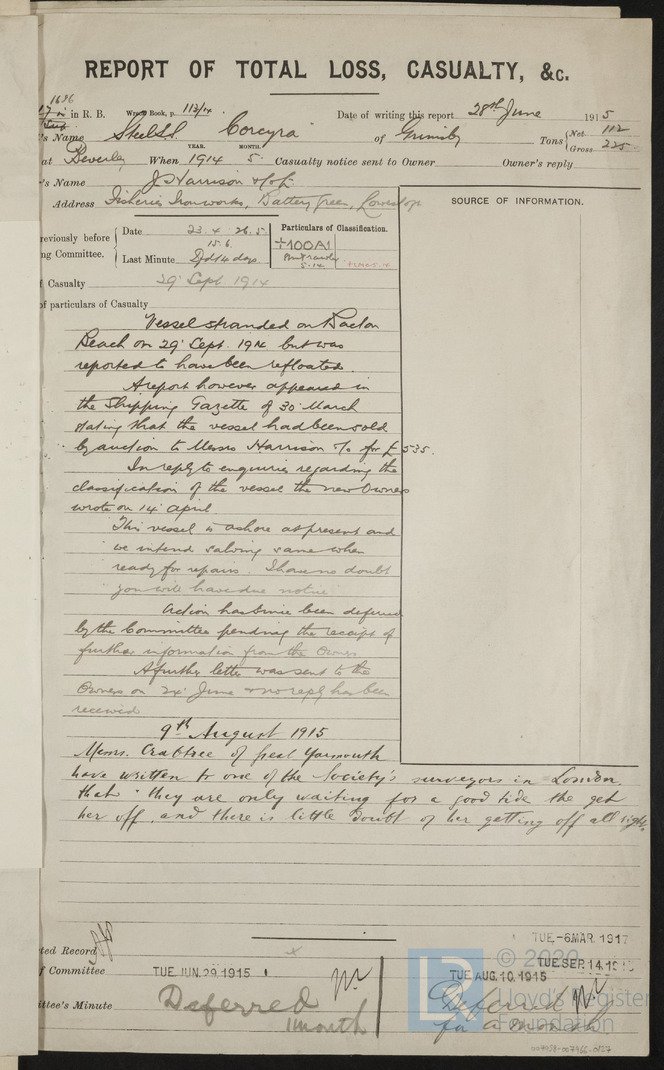 REPORT OF TOTAL LOSS, CASUALTY, &c.
1696
in R. B. Wreck Book, p. 113/14 Date of writing this report 28th June 1915
's Name Steel Corcyra of Grimsby Tons { Net 112
Gross 225
at Beverley When 1914 YEAR. 5. MONTH. Casualty notice sent to Owner Owner's reply
's Name J Harrison & Co Ld
Address Fisheries Ironworks, Battery Green, Lowestoft
SOURCE OF INFORMATION.
reviously before
ng Committee.
Date 23.4 26.5
15.6.
Last Minute Dfd 14 days
Particulars of Classification.
+100A1
5.14
f Casualty 29' Sept 1914
of particulars of Casualty
Vessel stranded on Bacton
Beach on 29' Sept. 1914 but was
reported to have been refloated.
A report however appeared in
the Shipping Gazette of 30' March
stating that the vessel had been sold
by auction to Messrs Harrison & Co for £535.
In reply to enquiries regarding the
classification of the vessel the new Owners
wrote on 14' april
This vessel is ashore at present and
we intend salving same when
ready for repairs I have no doubt
you will have due notice
Action has since been deferred
by the Committee pending the receipt of
further information from the Owners.
A further letter was sent to the
Owners on 24' June & no reply has been
received
9th August 1915
Messrs. Crabtree of Great Yarmouth
have written to one of the Society's surveyors in London
that "they are only waiting for a good tide the get
her off, and there is little doubt of her getting off all right.
TUE-6 MAR. 1917
ted Record
f Committee TUE JUN. 29 1915 TUE AUG. 10. 1915 TUE SEP. 14. 1915
ittee's Minute Deferred
1 month
Deferred
for a month
© 2020
Lloyd's Register
Foundation
007958-007966-0127